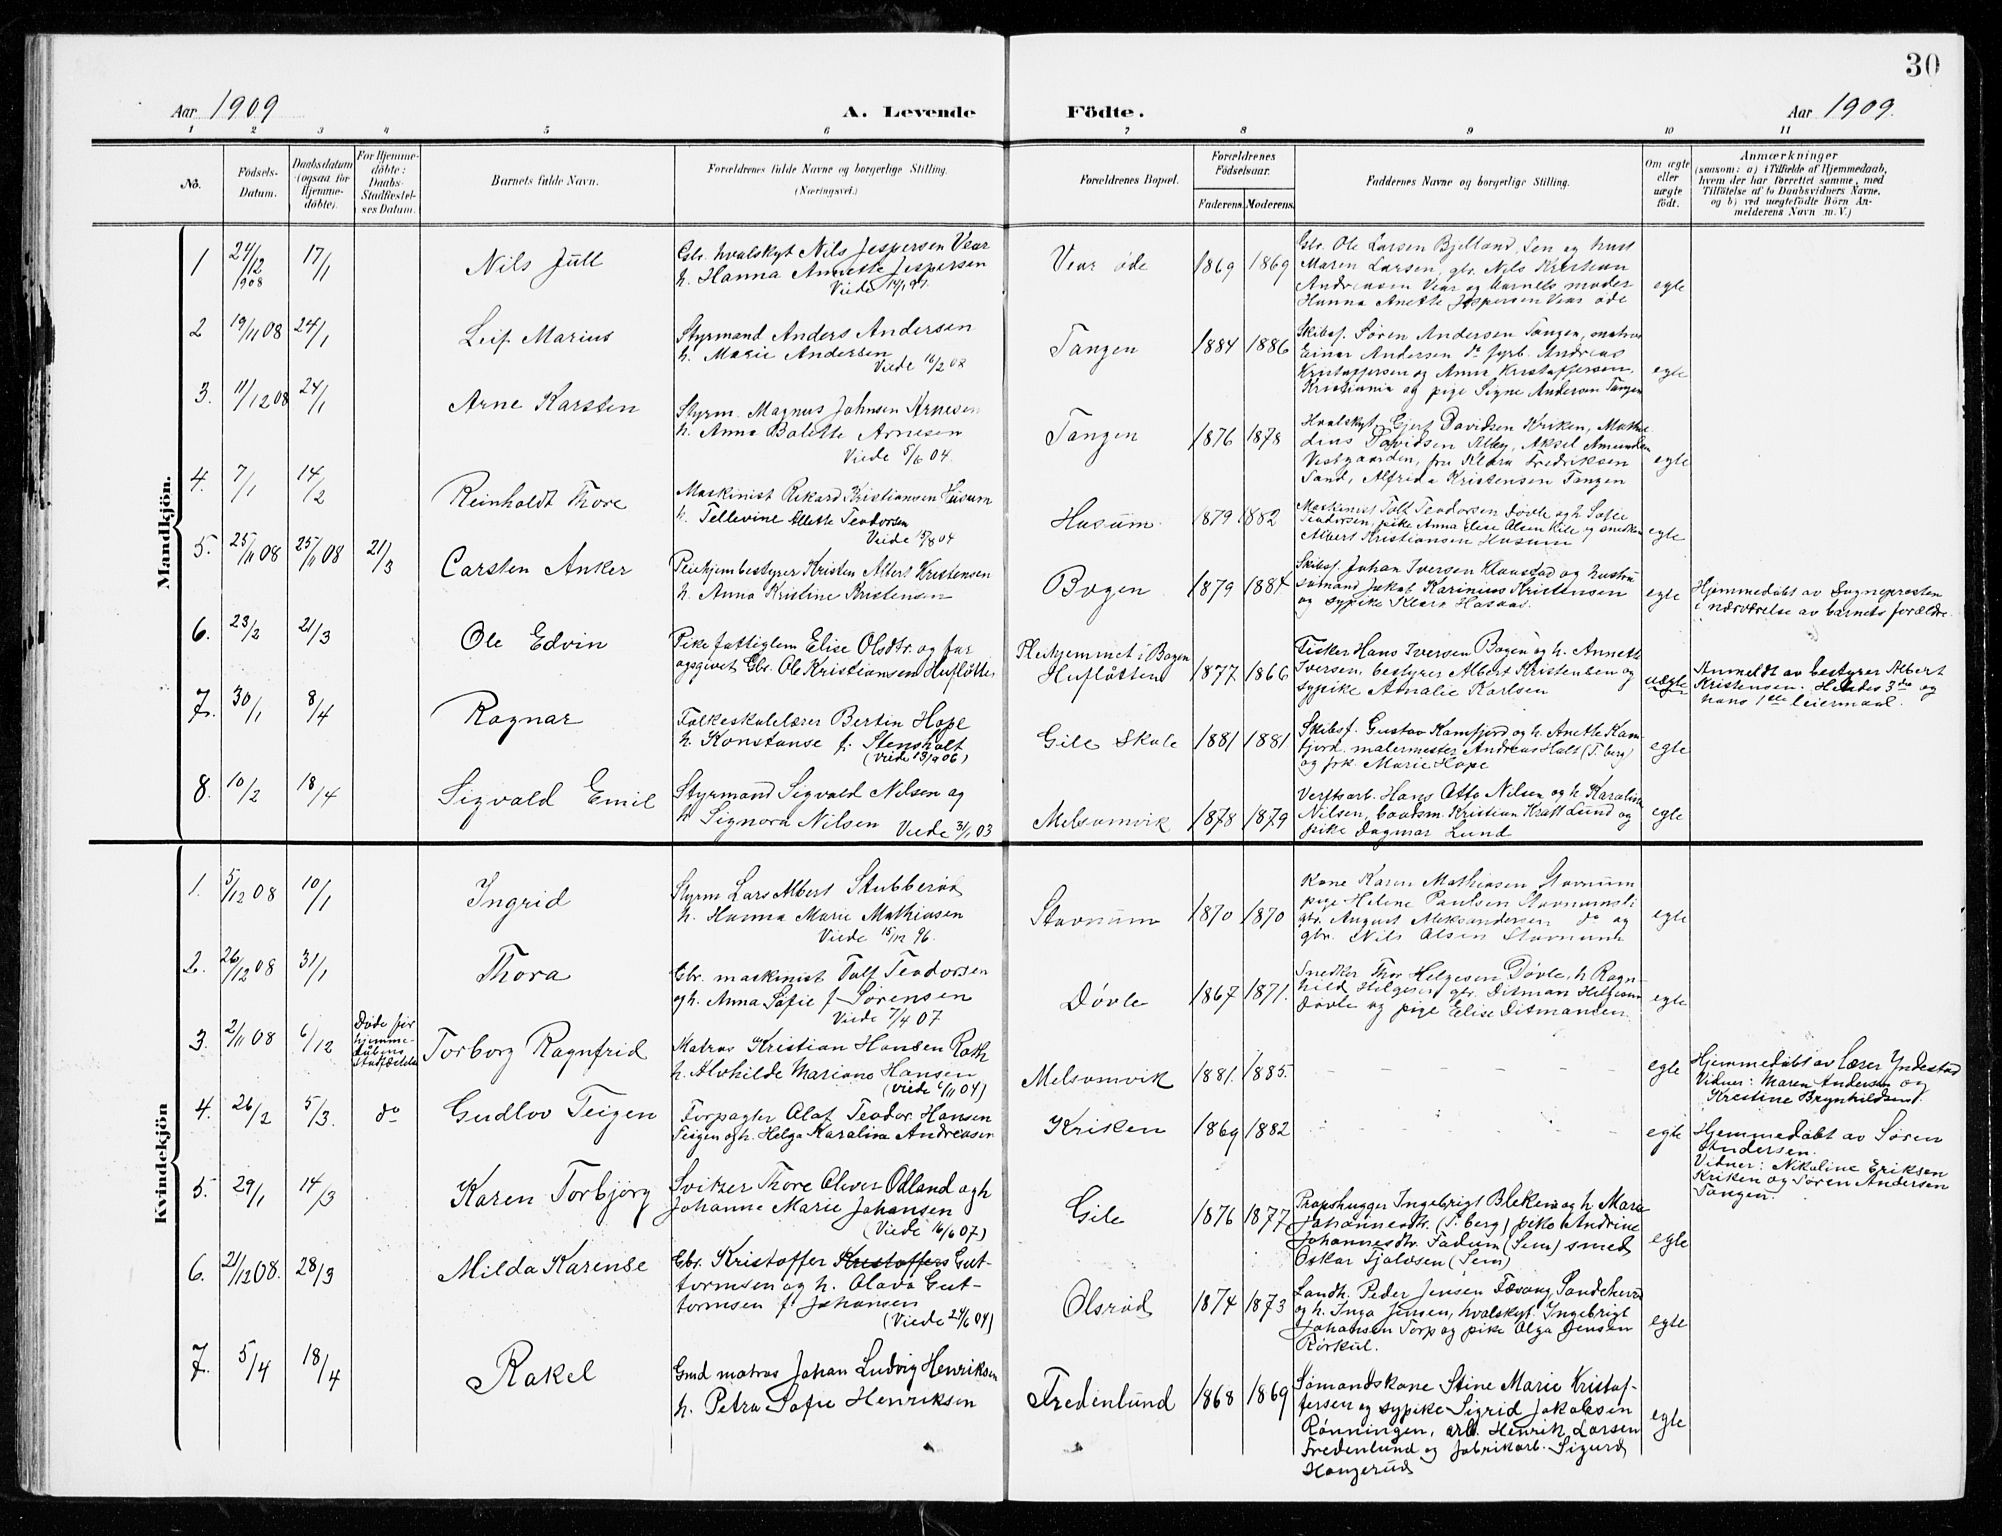 30
Aar 1909
A. Levende Födte.
Aar 1909.
1 2 3 4 5 6 7 8 9 10 11
No.
Födsels-
Datum.
Daabsdatum
(ogsaa för
Hjemme-
döbte).
For Hjemme-
döbte:
Daabs-
Stadfæstel-
ses Datum.
Barnets fulde Navn.
Forældrenes fulde Navne og borgerlige Stilling.
(Næringsvei.)
Forældrenes Bopæl.
Forældrenes
Födselsaar.
Faderens. Moderens.
Faddernes Navne og borgerlige Stilling.
Om ægte
eller
uægte
födt.
Anmærkninger
(saasom: a) i Tilfælde af Hjemmedaab,
hvem der har forrettet samme, med
Tilföielse af to Daabsvidners Navne,
og b) ved uægtefödte Börn An-
melderens Navn m. V.)
Mandkjön.
1 24/12 1908 17/1 Nils Jull
Gbr. hvalskyt Nils Jespersen Vear
h. Hanna Annette Jespersen
Viede
Vear øde 1869 1869
Gbr. Ole Larsen Bjelland Sem og hust
Maren Larsen, gbr. Nils Kristian
Andreasen Vear og barnets moder
Hanna Anette Jespersen Vear øde
egte
2 19/11 08 24/1 Leif Marius
Styrmand Anders Andersen
h. Marie Andersen
Viede 16/2 08
Tangen 1884 1886
Skibsf. Søren Andersen Tangen, matros
Einar Andersen do fyrb. Andreas
Kristoffersen og Anna Kristoffersen,
Kristiania og pige Signe Andersen Tangen
egte
3. 11/12 08 24/1 Arne Karsten
Styrm. Magnus Johnsen Arnesen
h. Anna Bolette Arnesen
Viede 5/6 04.
Tangen 1876 1878
Hvalskyt. Gjert Davidsen Kriken, Mathi
dius Davidsen Alby, Aksel Amundsen
Vestgaarden, fru Klara Fredriksen
Sand, Alfrida Kristensen Tangen
egte
4. 7/1 14/2 Reinholdt Thore
Maskinist Rikard Kristiansen Husum
h. Tellevine Alette Teodorsen
Viede 15/8 04
Husum. 1879 1882
Maskinist Tolf Teodorsen Døvle og h Sofie
Teodorsen, pike Anna Elise Olsen Kile og snedker
Albert Kristiansen Husum
egte
5. 25/11 08 25/11 08 21/3 Carsten Anker
Pleiehjembestyrer Kristen Albert Kristensen
h. Anna Kristine Kristensen
Bogen 1879 1884
Skibsf. Johan Iversen Klaastad og hustru
sømand Jakob Karinius Kristensen
og sypike Klara Hasaas
egte
Hjemmedøbt av Sogneprosten
i nærværelse av barnets forældre
6. 23/2 21/3 Ole Edvin
Pike fattiglem Elise Olsdtr. og far
opgivet Gbr. Ole Kristiansen Hufløtten
Pleihjemmet i Bogen
Hufløtten 1877 1866
Fisker Hans Iversen Bogen og h. Annette
Iversen, bestyrer Albert Kristensen og
sypike Amalie Karlsen
uægte
Anmeldt av bestyrer Albert
Kristensen. Hendes 3die og
hans 1ste leiermaal.
7. 30/1 8/4 Ragnar
Folkeskolelærer Bertin Hope
h. Konstanse f. Stensholt
(Viede 13/9 06)
Gile Skole 1881 1881
Skibsf. Gustav Kamfjord og h. Anette Kam
fjord, malermester Andreas Holt (T.berg)
og frk. Marie Hope
egte
8. 10/2 18/4 Sigvald Emil
Styrmand Sigvald Nilsen og
h Signora Nilsen Viede 31/1 03
Melsomvik 1878 1879
Verftsarb. Hans Otto Nilsen og h. Karalina
Nilsen, baadsm. Kristian Kraft Lund og
pike Dagmar Lund
egte
Kvindekjön
1. 5/12 08 10/1 Ingrid
Styrm Lars Albert Stubberød
h. Hanna Marie Mathiasen
Viede 15/12 96.
Stavnum 1870 1870
Kone Karen Mathiasen Stavnum
pige Helene Paulsen
gbr. August Aleksandersen do og
gbr. Nils Olsen Stavnum
egte
2. 26/12 08 31/1 Thora
Gbr. maskinist Tolf Teodorsen
og h. Anna Sofie f Sørensen
Viede 7/4 07.
Døvle 1867 1871.
Snedker Thor Helgesen Døvle, h Ragn
hild Helgesen, gbr. Ditman Helgesen
Døvle og pige Elise Ditmansen.
egte
3. 2/11 08 6/12 Døde før
hjemme-
daabens
stadfæstelse Torborg Ragnfrid
Matros Kristian Hansen Roth
h. Alvhilde Mariane Hansen
(viede 6/11 04)
Melsomvik 1881. 1885.
egte
Hjemmedøbt av lærer Yndestad
Vidner: Maren Andersen og
Kristine Brynhildsend.
4. 26/2 5/3. do Gudlov Teigen
Forpagter Olaf Teodor Hansen
Teigen og h. Helga Karalina Andreasen
Kriken 1869 1882
egte
Hjemmedøbt av Søren
Andersen.
Vidner: Nikoline Eriksen
Kriken og Søren Andersen
Tangen.
5. 29/1 14/3 Karen Torbjørg
Svitzer Thore Oliver Odland og h
Johanne Marie Johansen
(Viede 16/6 07)
Gile 1876 1877
Propshugger Ingebrigt Bleken og h. Marie
Johannesdtr. (T.berg) pike Andrine
Johannesdtr. Fadum (Sem) smed
Oskar Fjalvsen (Sem)
egte
6. 21/12 08. 28/3 Milda Karense
Gbr. Kristoffer Kristoffers Gut-
tormsen og h. Olava Gut-
tormsen f Johansen
(Viede 24/6 04)
Olsrød 1874 1873
Landh. Peder Jensen Fæsang Sandeherred
og h. Inga Jensen, hvalskyt. Ingebrigt
Johansen Torp og pike Olga Jensen
Rørkul.
egte
7. 5/4 18/4 Rakel
Gmd matros Johan Ludvig Henriksen
h. Petra Sofie Henriksen
Fredenlund 1868 1869
Sømandskone Stine Marie Kristof-
fersen og sypike Sigrid Jakobsen
Rønningen, arb. Henrik Larsen
Fredenlund og fabrikarb. Sigurd
Haugerud
egte